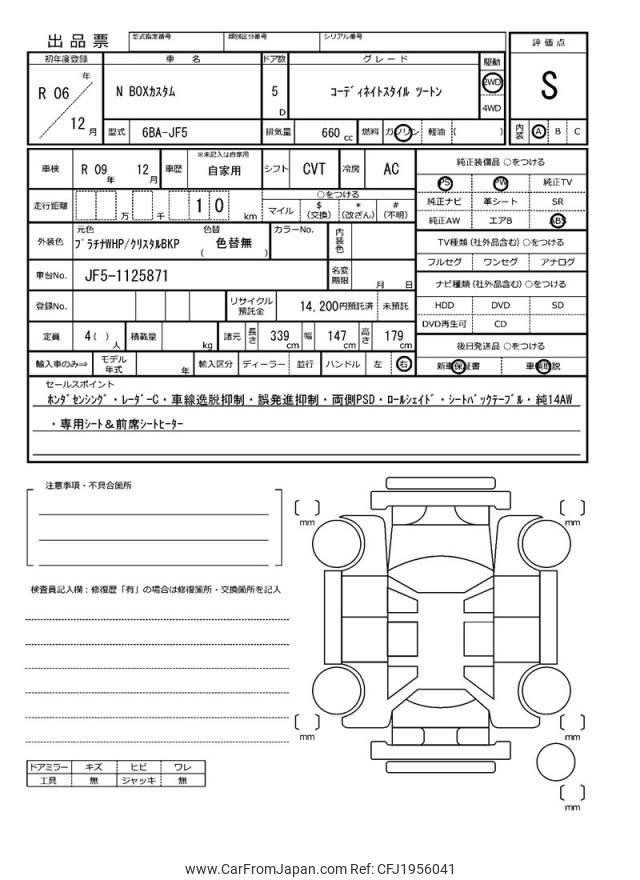 出品票
型式指定番号 類別区分番号 シリアル番号
評価点
S
初年度登録 車名 ドア数 グレード 駆動
R 06 年 12 月
N BOXカスタム
5 D
コーディネイトスタイル ツートン
2WD
4WD
型式 6BA-JF5 排気量 660 cc 燃料 ガソリン 軽油 ( )
内装 A B C
車検 R 09 年 12 月 車歴 ※未記入は自家用 自家用 シフト CVT 冷房 AC
純正装備品 ○をつける
PS PW 純正TV
純正ナビ 革シート SR
純正AW エアB ABS
走行距離 万 千 1 0 km
○をつける
マイル $(交換) *(改ざん) #(不明)
TV種類 (社外品含む) ○をつける
フルセグ ワンセグ アナログ
外装色 元色 プラチナWHP/クリスタルBKP 色替 色替無 ( ) カラーNo. 内装色
車台No. JF5-1125871 名変期限 月 日
ナビ種類 (社外品含む) ○をつける
HDD DVD SD
DVD再生可 CD
登録No. リサイクル預託金 14,200円預託済 未預託
定員 4( ) 人 積載量 kg 諸元 長さ 339 cm 幅 147 cm 高さ 179 cm
後日発送品 ○をつける
新車保証書 車輌取説
輸入車のみ⇒ モデル年式 年 輸入区分 ディーラー 並行 ハンドル 左 右
セールスポイント
ホンダセンシング・レーダーC・車線逸脱抑制・誤発進抑制・両側PSD・ロールシェイド・シートバックテーブル・純14AW
・専用シート＆前席シートヒーター
注意事項・不具合箇所
検査員記入欄：修復歴「有」の場合は修復箇所・交換箇所を記入
mm
mm
mm
mm
mm
ドアミラー キズ ヒビ ワレ
工具 無 ジャッキ 無
www.CarFromJapan.com Ref: CFJ1956041